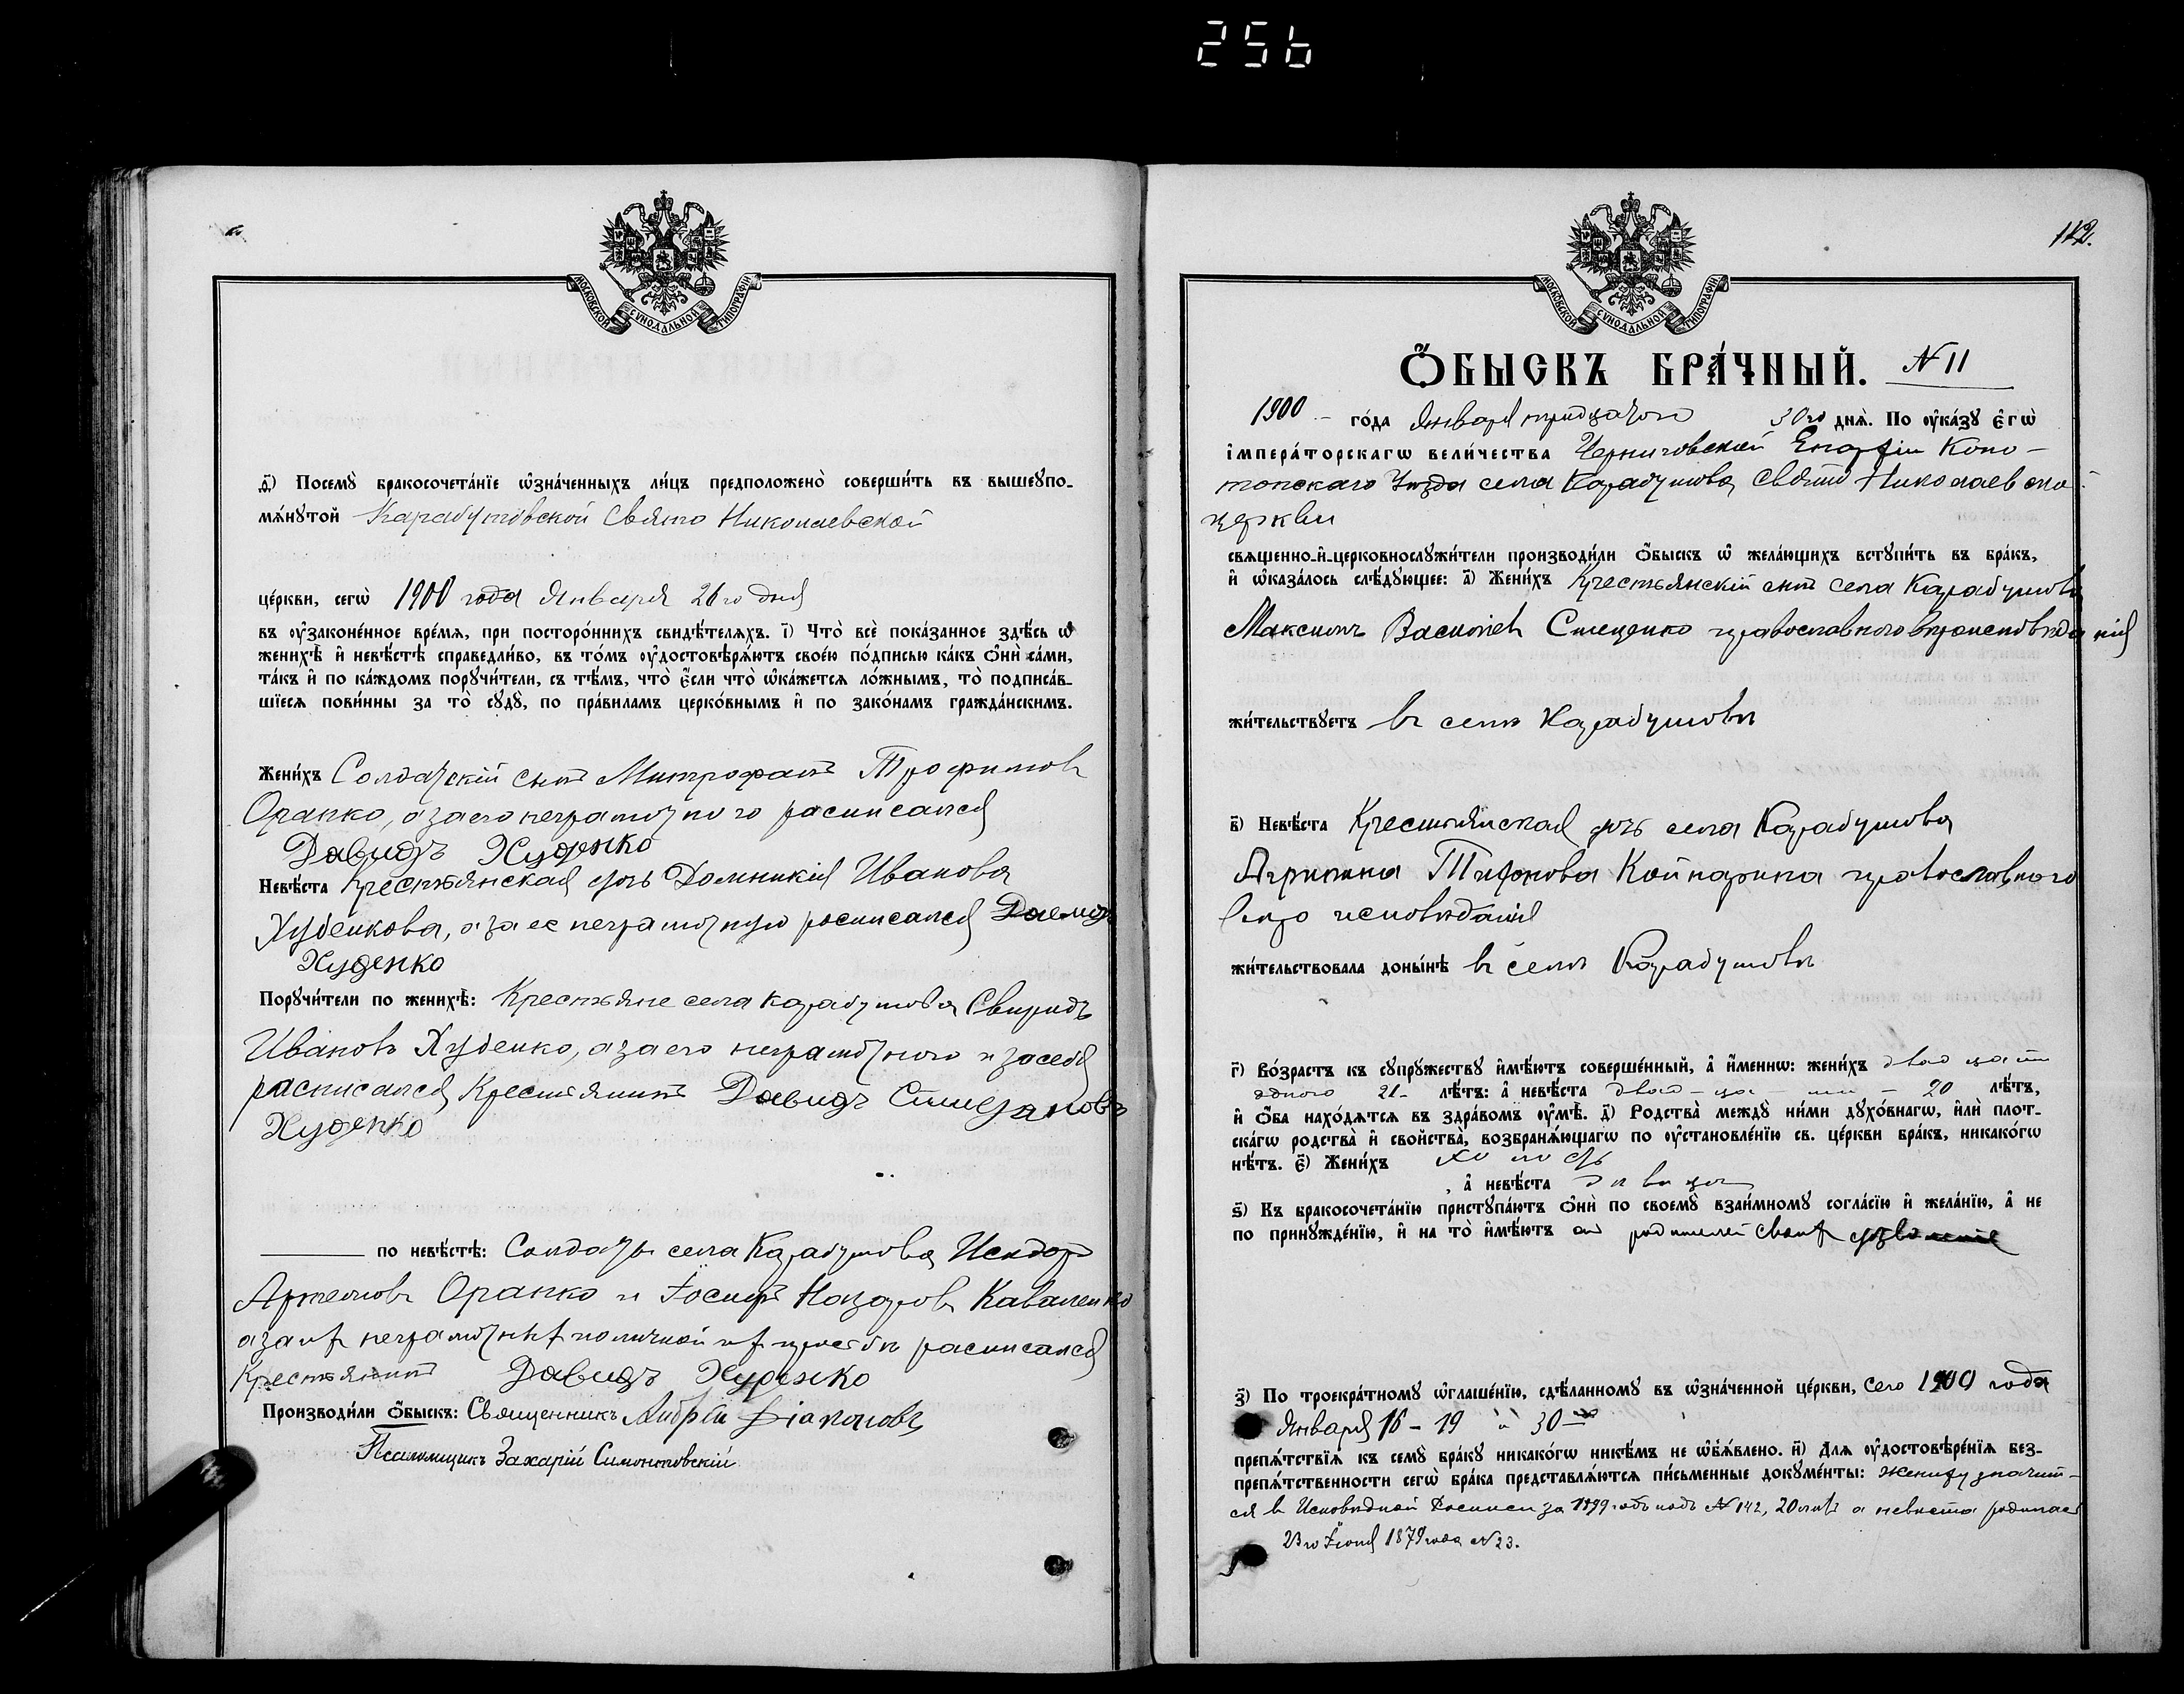 256
МОСКОВСКОЙ СѴНОДАЛЬНОЙ ТИПОГРАФІИ
д҃) Посемꙋ̀ бракосочета́нїе ѡ҆зна́ченныхъ ли́цъ предположено̀ соверши́ть въ вышеꙋпо-
мѧ́нꙋтой Карабутовской Свято Николаевской
це́ркви, сегѡ̀ 1900 года Января 26го дня
въ ᲂу҆законе́нное вре́мѧ, при посторо́ннихъ свидѣ́телѧхъ. і҃) Что̀ всѐ пока́занное здѣ́сь ѡ҆
женихѣ̀ и҆ невѣ́стѣ справедли́во, въ то́мъ ᲂу҆достовѣрѧ́ютъ свое́ю по́дписью ка́къ ѻ҆нѝ са́ми,
та́къ и҆ по ка́ждомъ порꙋчи́тели, съ тѣ́мъ, что̀ є҆́сли что̀ ѡ҆ка́жетсѧ ло́жнымъ, то̀ подписа́в-
шїесѧ пови́нны за то̀ сꙋдꙋ̀, по пра́виламъ церко́внымъ и҆ по зако́намъ гражда́нскимъ.
Жени́хъ Солдатскій сынъ Митрофанъ Трофимовъ
Оранко, а за его неграмотного росписался
Давидъ Худенко
Невѣ́ста Крестьянская дочь Домникія Иванова
Худенкова, а за ее неграмотную росписался Давидъ
Худенко
Порꙋчи́тели по женихѣ̀: Крестьяне села Карабутова Свиридъ
Ивановъ Худенко, а за его неграмотного и за себя
расписался Крестьянинъ Давидъ
Худенко
по невѣ́стѣ: Солдаты села Карабутова Исидоръ
Артемовъ Оранко и Іосифъ Назаровъ Каваленко
а за ихъ неграмотныхъ по личной ихъ просьбѣ расписался
Крестьянинъ Давидъ Худенко
Производи́ли ѻ҆́быскъ: Священникъ Андрей Діаконовъ
Псаломщикъ Захарій Симонтовскій
112.
МОСКОВСКОЙ СѴНОДАЛЬНОЙ ТИПОГРАФІИ
Ѻ҆́БЫСКЪ БРА́ЧНЫЙ. N 11
1900 го́да Января тридцатого 30го днѧ̀. По ᲂу҆ка́зꙋ є҆гѡ̀
і҆мпера́торскагѡ вели́чества Черниговской Епархіи Коно-
топскаго Уѣзда села Карабутова Свято Николаевской
церкви
свѧщенно-и҆-церковнослꙋжи́тели производи́ли ѻ҆́быскъ ѡ҆ жела́ющихъ встꙋпи́ть въ бра́къ,
и҆ ѡ҆каза́лось слѣ́дꙋющее: а҃) Жени́хъ Крестьянскій сынъ села Карабутова
Максимъ Васильевъ Стеценко православного вѣроисповѣданія
жи́тельствꙋетъ въ селѣ Карабутовѣ
в҃) Невѣ́ста Крестьянская дочь села Карабутова
Тифонова православного
вѣро исповѣданія
жи́тельствовала доны́нѣ въ селѣ Карабутовѣ
г҃) Во́зрастъ къ сꙋпрꙋ́жествꙋ и҆мѣ́ютъ соверше́нный, а҆ и҆́меннѡ: жени́хъ двадцати
одного 21- лѣ́тъ: а҆ невѣ́ста двад-ца-ти - 20 лѣ́тъ,
и҆ ѻ҆́ба нахо́дѧтсѧ въ здра́вомъ ᲂу҆мѣ̀. д҃) Родства̀ междꙋ̀ ни́ми дꙋхо́внагѡ, и҆лѝ пло́т-
скагѡ родства̀ и҆ свойства̀, возбранѧ́ющагѡ по ᲂу҆становле́нїю св. це́ркви бра́къ, никако́гѡ
нѣ́тъ. є҃) Жени́хъ холостъ
, а҆ невѣ́ста дѣвица
ѕ҃) Къ бракосочета́нїю пристꙋпа́ютъ ѻ҆нѝ по своемꙋ̀ взаи́мномꙋ согла́сїю и҆ жела́нїю, а҆ не
по принꙋжде́нїю, и҆ на то̀ и҆мѣ́ютъ отъ родителей своихъ дозволеніе
з҃) По троекра́тномꙋ ѡ҆глаше́нїю, сдѣ́ланномꙋ въ ѡ҆зна́ченной це́ркви, сего 1900 года
Января 16 - 19 и 30
препѧ́тствїѧ къ семꙋ̀ бра́кꙋ никако́гѡ никѣ́мъ не ѡ҆б̾ѧ́влено. и҃) Длѧ ᲂу҆достовѣре́нїѧ без-
препѧ́тственности сегѡ̀ бра́ка представлѧ́ютсѧ пи́сьменные докꙋме́нты: жениху значит-
ся въ Исповѣдной Росписи за 1899 годъ подъ N 142, 20 лѣтъ а невѣста родилась
23го Іюня 1879 года N 23.